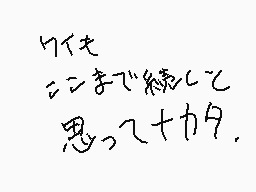 ワイも
ここまで続くと
思ってナカタ.